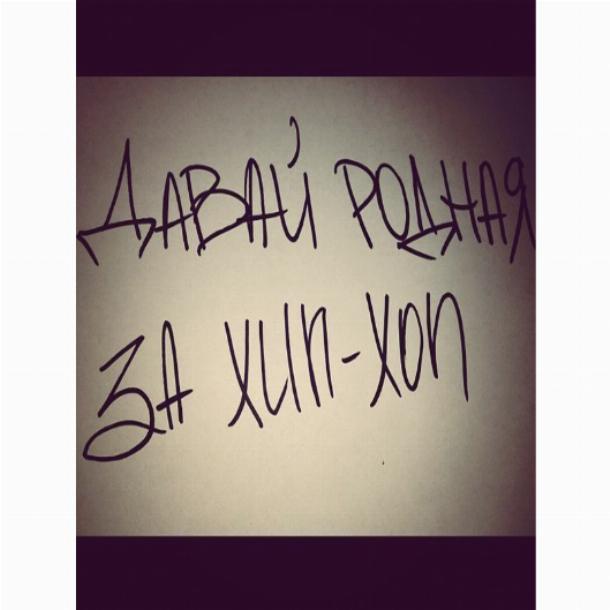 ДАВАЙ РОДНАЯ
ЗА ХИП-ХОП